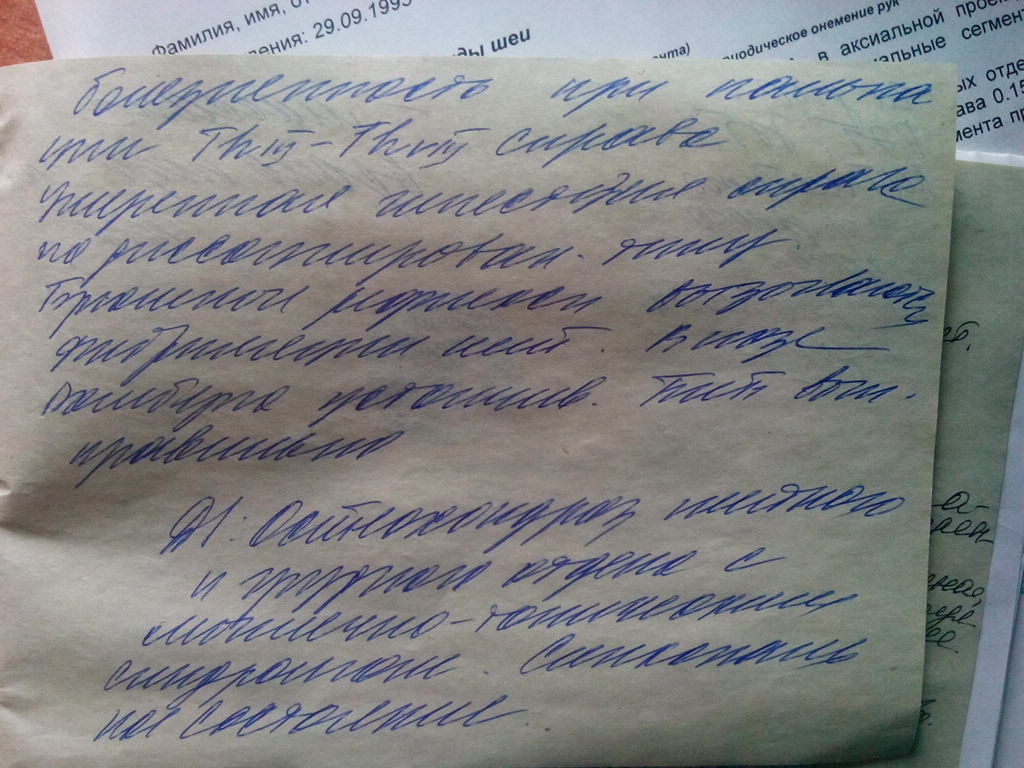 Фамилия, имя, от
ения: 29.09.1995
ды шеи
ента)
иодическое онемение рук
в аксиальной проек
альные сегмент
ых отде
ава 0.15
мента пр
болезненность при пальпа
ции Th III - Th VIII справа
Умеренная гипестезия справа
по диссоциирован. типу.
Брюшные рефлексы вызываются
асимметрии нет. В позе
Ромберга устойчив. ПНП вып.
правильно
Ds: Остеохондроз шейного
и грудного отдела с
мышечно-тоническим
синдромом. Синкопаль
ное состояние.